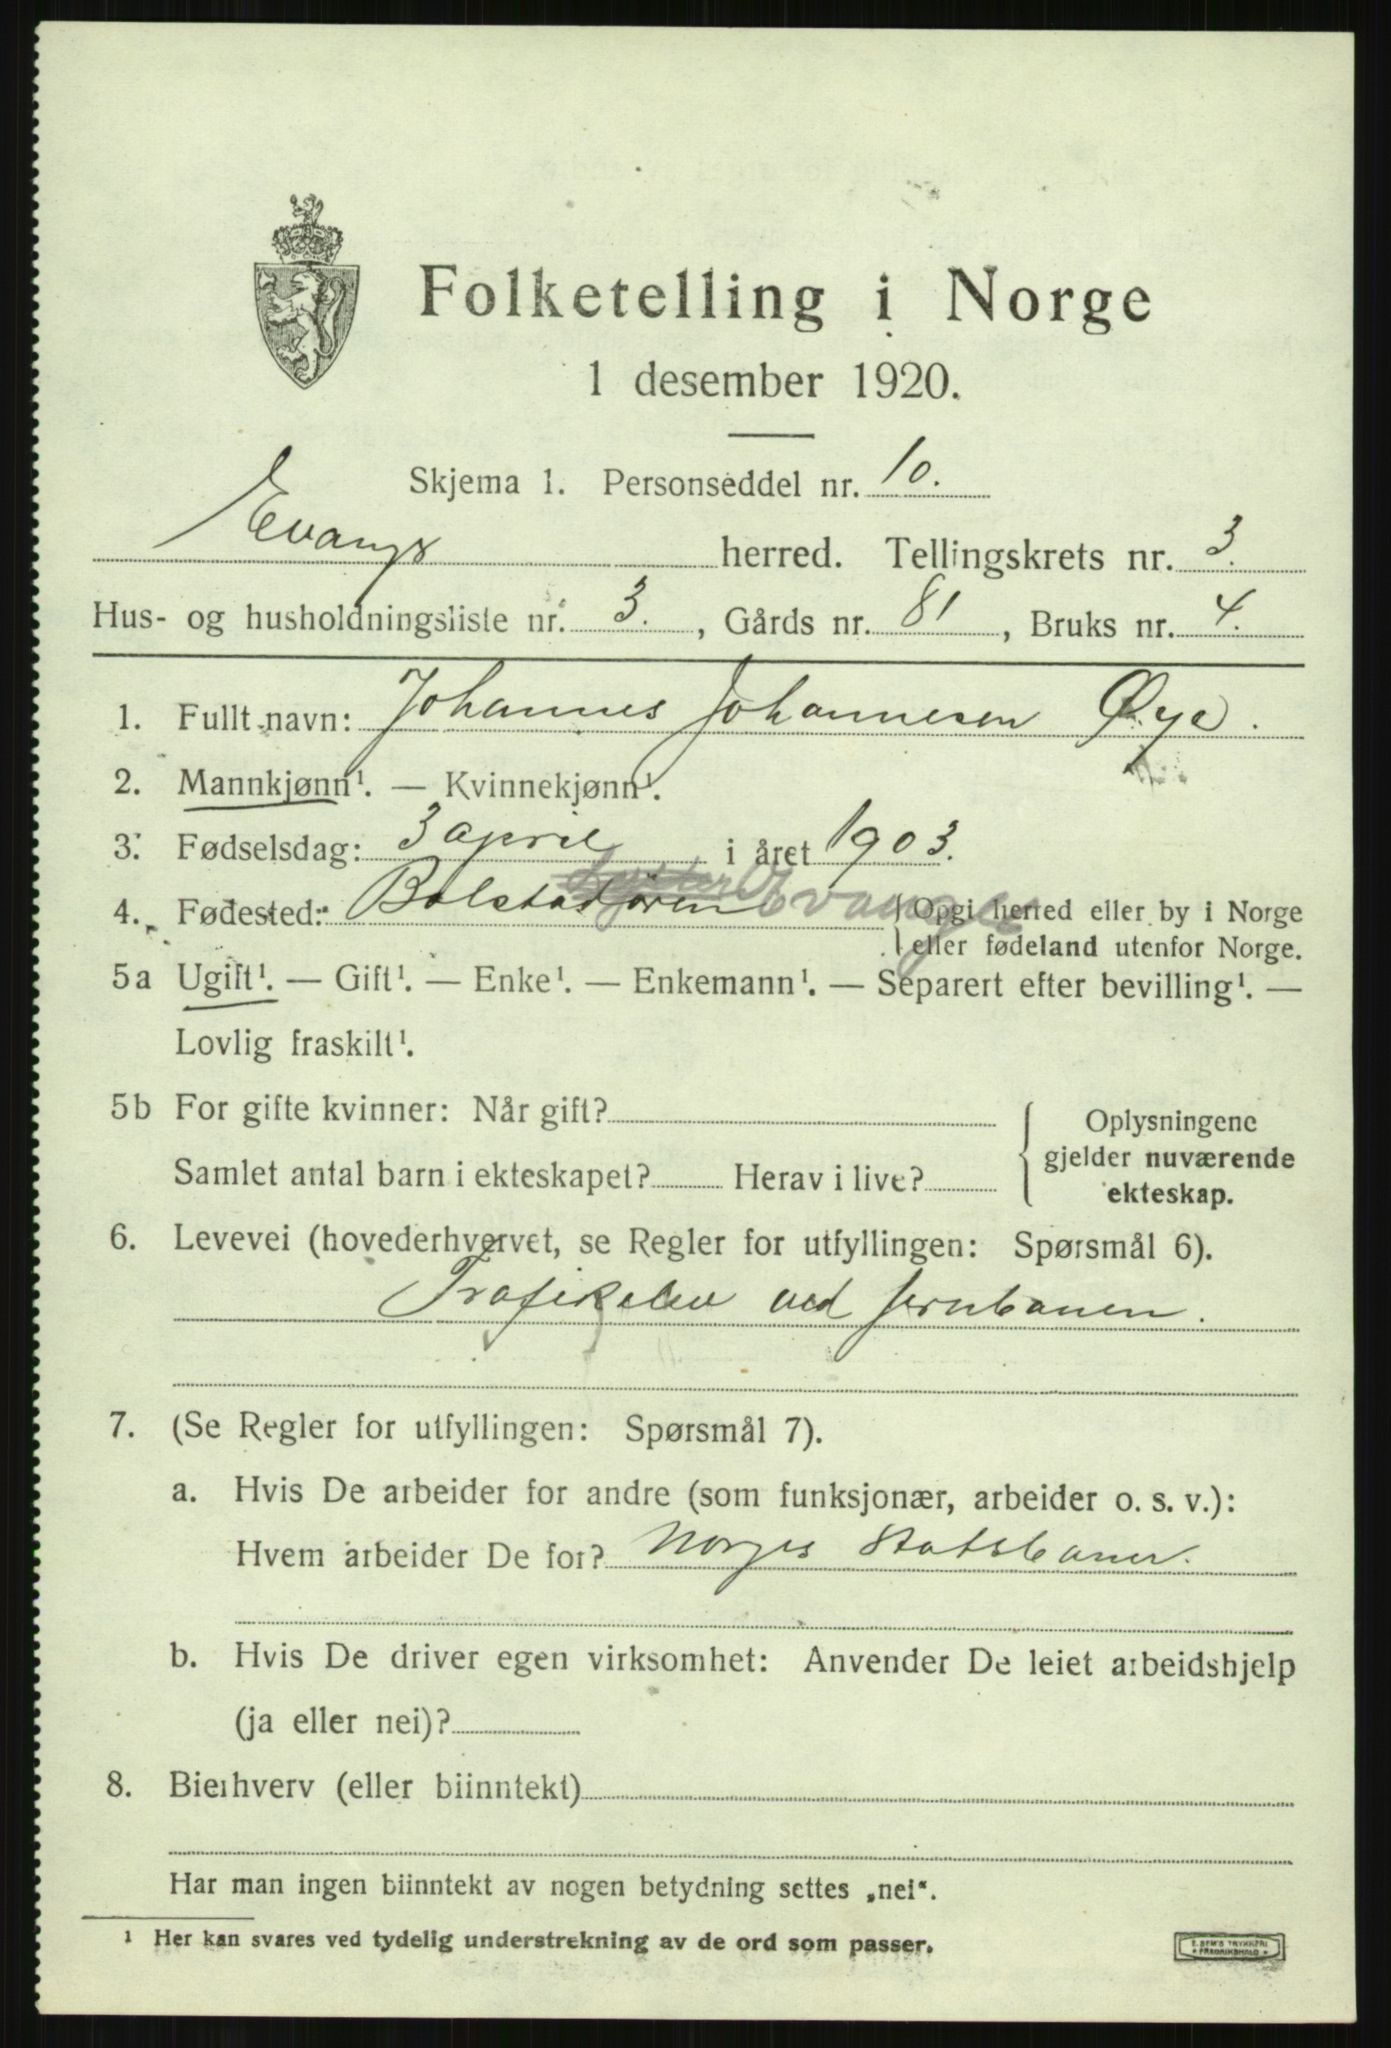 Folketelling i Norge
1 desember 1920.
Skjema 1. Personseddel nr. 10.
Evanger herred. Tellingskrets nr. 3.
Hus- og husholdningsliste nr. 3., Gårds nr. 81, Bruks nr. 4.
1. Fullt navn: Johannes Johannesen Øye.
2. Mannkjønn¹. — Kvinnekjønn¹.
3. Fødselsdag: 3 april i året 1903.
4. Fødested: Bolstadøren Evanger {Opgi herred eller by i Norge
eller fødeland utenfor Norge.
5a Ugift¹. — Gift¹. — Enke¹. — Enkemann¹. — Separert efter bevilling¹. —
Lovlig fraskilt¹.
5b For gifte kvinner: Når gift?
Samlet antal barn i ekteskapet? Herav i live?
{ Oplysningene
gjelder nuværende
ekteskap.
6. Levevei (hovederhvervet, se Regler for utfyllingen: Spørsmål 6).
Trafikelev ved jernbanen.
7. (Se Regler for utfyllingen: Spørsmål 7).
a. Hvis De arbeider for andre (som funksjonær, arbeider o. s. v.):
Hvem arbeider De for? Norges Statsbaner.
b. Hvis De driver egen virksomhet: Anvender De leiet arbeidshjelp
(ja eller nei)?
8. Bierhverv (eller biinntekt)
Har man ingen biinntekt av nogen betydning settes „nei“.
¹ Her kan svares ved tydelig understrekning av de ord som passer.
E. SEM'S TRYKKERI
• FREDRIKSHALD •